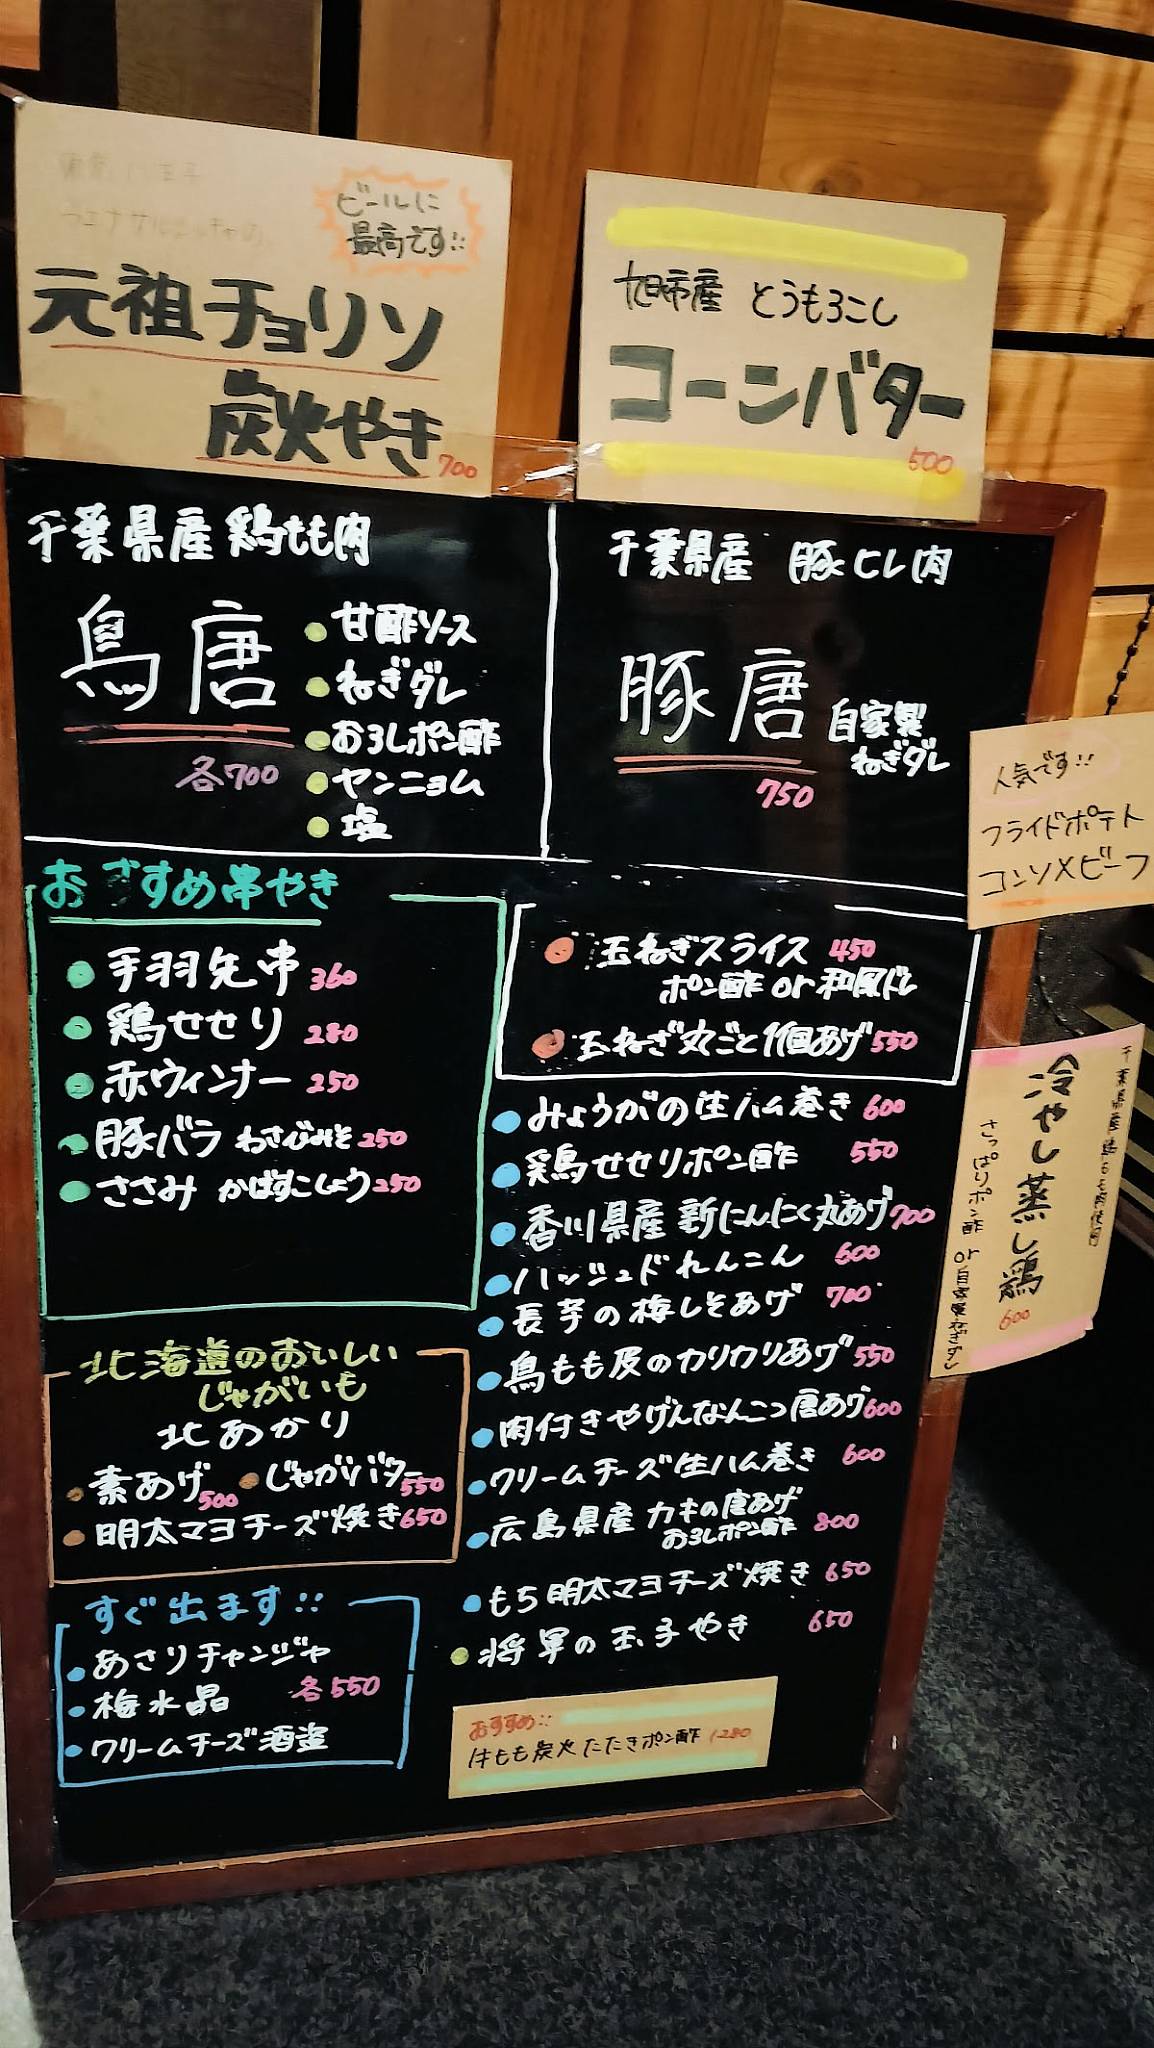 ビールに
最高です!!
元祖チョリソ
炭火やき
700
旭市産 とうもろこし
コーンバター
500
千葉県産鶏もも肉
鳥唐
各700
甘酢ソース
ねぎダレ
おろしポン酢
ヤンニョム
塩
千葉県産 豚ヒレ肉
豚唐
自家製
ねぎダレ
750
人気です!!
フライドポテト
コンソメビーフ
おすすめ串やき
手羽先串 360
鶏せせり 280
赤ウィンナー 250
豚バラ わさびみそ 250
ささみ かばすこしょう 250
玉ねぎスライス 450
ポン酢 or 和風ドレ
玉ねぎ丸ごと1個あげ 550
みょうがの生ハム巻き 600
鶏せせりポン酢 550
香川県産 新にんにく丸あげ 700
ハッシュドれんこん 600
長芋の梅しそあげ 700
鳥もも皮のカリカリあげ 550
肉付きやげんなんこつ唐あげ 600
クリームチーズ生ハム巻き 600
広島県産 カキの唐あげ
おろしポン酢 800
もち明太マヨチーズ焼き 650
将軍の玉子やき 650
冷やし蒸し鶏
600
さっぱりポン酢 or 自家製ねぎダレ
北海道のおいしい
じゃがいも
北あかり
素あげ 500 じゃがバター 550
明太マヨチーズ焼き 650
すぐ出ます!!
あさりチャンジャ
梅水晶 各550
クリームチーズ酒盗
おすすめ!!
はもも炭火たたきポン酢 1280